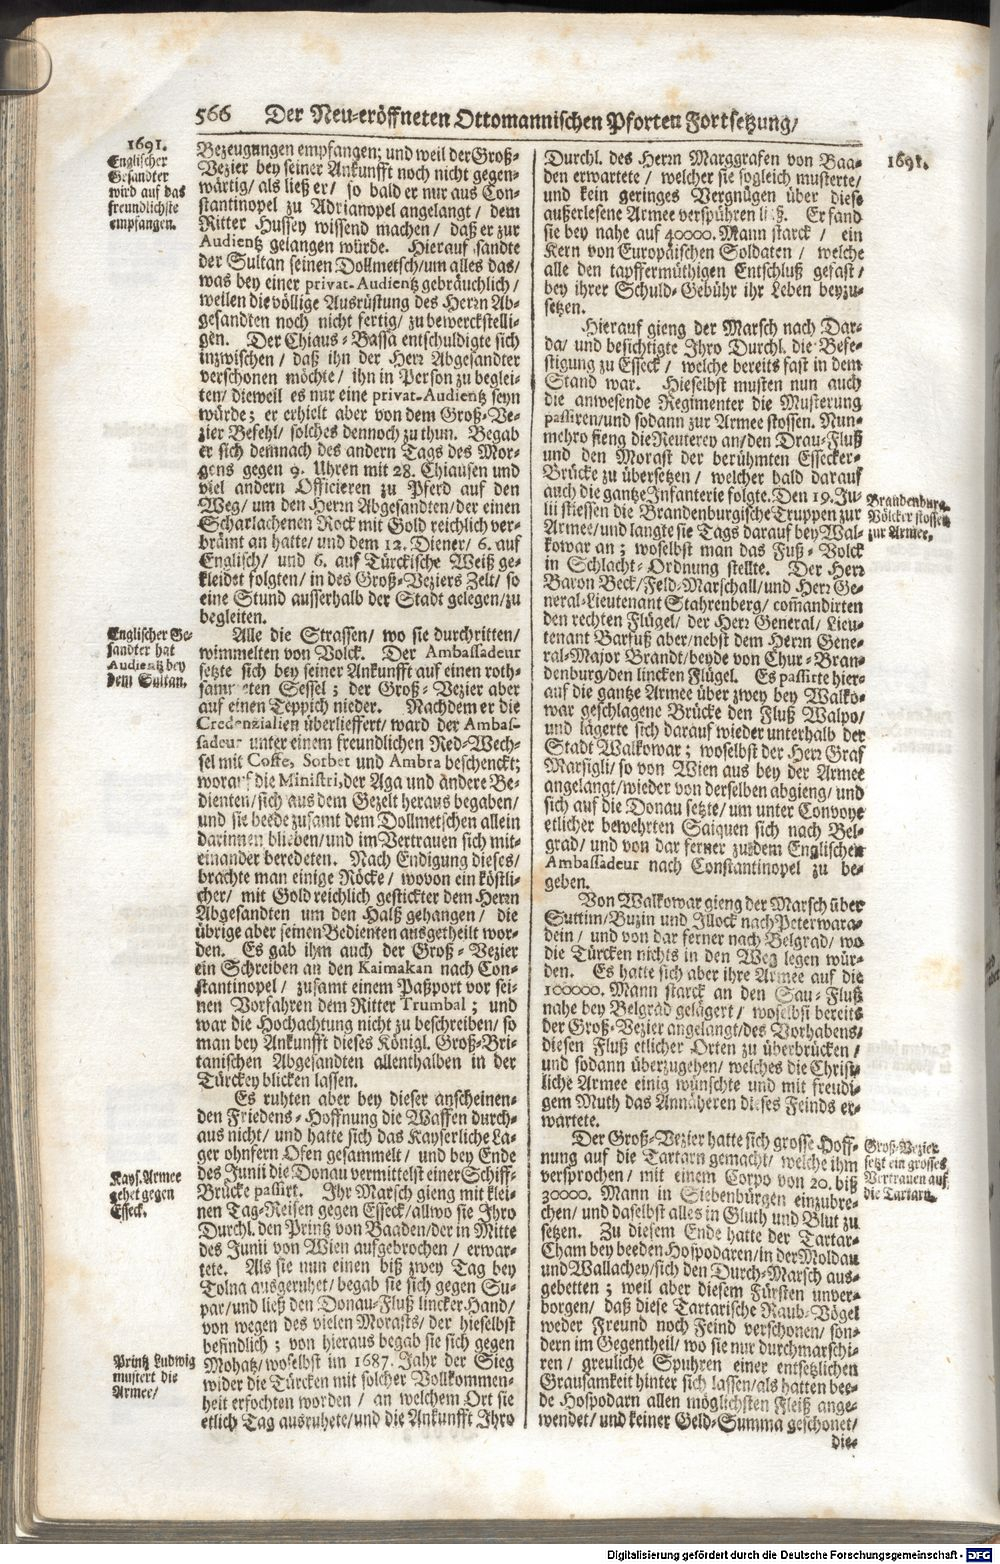 566 Der Neu-eröffneten Ottomannischen Pforten Fortsetzung/
1691.
Englischer
Gesandter
wird auf das
freundlichste
empfangen.
Bezeugungen empfangen; und weil der Groß-
Vezier bey seiner Ankunfft noch nicht gegen-
wärtig/ als ließ er/ so bald er nur aus Con-
stantinopel zu Adrianopel angelangt/ dem
Ritter Hussey wissend machen/ daß er zur
Audientz gelangen würde. Hierauf sandte
der Sultan seinen Dollmetsch/um alles das/
was bey einer privat-Audientz gebräuchlich/
weilen die völlige Ausrüstung des Herrn Ab-
gesandten noch nicht fertig/ zu bewerckstelli-
gen. Der Chiaus-Bassa entschuldigte sich
inzwischen/ daß ihn der Herr Abgesandter
verschonen möchte/ ihn in Person zu beglei-
ten/ dieweil es nur eine privat-Audientz seyn
würde; er erhielt aber von dem Groß-Ve-
zier Befehl/ solches dennoch zu thun. Begab
er sich demnach des andern Tags des Mor-
gens gegen 9. Uhren mit 28. Chiausen und
viel andern Officieren zu Pferd auf den
Weg/ um den Herrn Abgesandten/der einen
Scharlachenen Rock mit Gold reichlich ver-
brämt an hatte/ und dem 12. Diener/ 6. auf
Englisch/ und 6. auf Türckische Weiß ge-
kleidet folgten/ in des Groß-Veziers Zelt/ so
eine Stund ausserhalb der Stadt gelegen/zu
begleiten.
Englischer Ge-
sandter hat
Audientz bey
dem Sultan.
Alle die Strassen/ wo sie durchritten/
wimmelten von Volck. Der Ambassadeur
setzte sich bey seiner Ankunfft auf einen roth-
sammeten Sessel; der Groß-Vezier aber
auf einen Teppich nieder. Nachdem er die
Credenzialien überlieffert/ ward der Ambas-
sadeur unter einem freundlichen Red-Wech-
sel mit Coffe, Sorbet und Ambra beschenckt;
worauf die Ministri, der Aga und andere Be-
dienten/sich aus dem Gezelt heraus begaben/
und sie beede zusamt dem Dollmetschen allein
darinnen blieben/und im Vertrauen sich mit-
einander beredeten. Nach Endigung dieses/
brachte man einige Röcke/ wovon ein köstli-
cher/ mit Gold reichlich gestickter dem Herrn
Abgesandten um den Halß gehangen/ die
übrige aber seinen Bedienten ausgetheilt wor-
den. Es gab ihm auch der Groß-Vezier
ein Schreiben an den Kaimakan nach Con-
stantinopel/ zusamt einem Paßport vor sei-
nen Vorfahren dem Ritter Trumbal; und
war die Hochachtung nicht zu beschreiben/ so
man bey Ankunfft dieses Königl. Groß-Bri-
tanischen Abgesandten allenthalben in der
Türckey blicken lassen.
Es ruhten aber bey dieser anscheinen-
den Friedens-Hoffnung die Waffen durch-
aus nicht/ und hatte sich das Kayserliche La-
ger ohnfern Ofen gesammelt/ und bey Ende
des Junii die Donau vermittelst einer Schiff-
Brücke passirt. Ihr Marsch gieng mit klei-
nen Tag-Reisen gegen Esseck/allwo sie Ihro
Durchl. den Printz von Baaden/der in Mitte
des Junii von Wien aufgebrochen/ erwar-
tete. Als sie nun einen biß zwey Tag bey
Tolna ausgeruhet/ begab sie sich gegen Su-
par/und ließ den Donau-Fluß lincker Hand/
von wegen des vielen Morasts/ der hieselbst
befindlich; von hieraus begab sie sich gegen
Mohatz/woselbst im 1687. Jahr der Sieg
wider die Türcken mit solcher Vollkommen-
heit erfochten worden/ an welchem Ort sie
etlich Tag ausruhete/und die Ankunfft Ihro
Kays. Armee
gehet gegen
Esseck.
Printz Ludwig
mustert die
Armee/
1691.
Durchl. des Herrn Marggrafen von Baa-
den erwartete/ welcher sie sogleich musterte/
und kein geringes Vergnügen über diese
außerlesene Armee verspühren ließ. Er fand
sie bey nahe auf 40000. Mann starck/ ein
Kern von Europäischen Soldaten/ welche
alle den tapffermüthigen Entschluß gefast/
bey ihrer Schuld-Gebühr ihr Leben beyzu-
setzen.
Hierauf gieng der Marsch nach Dar-
da/ und besichtigte Ihro Durchl. die Befe-
stigung zu Esseck/ welche bereits fast in dem
Stand war. Hieselbst musten nun auch
die anwesende Regimenter die Musterung
passiren/und sodann zur Armee stossen. Nun-
mehro fieng die Reuterey an/den Drau-Fluß
und den Morast der berühmten Essecker-
Brücke zu übersetzen/ welcher bald darauf
auch die gantze Infanterie folgte. Den 19. Ju-
lii stiessen die Brandenburgische Truppen zur
Armee/und langte sie Tags darauf bey Wal-
kowar an; woselbst man das Fuß-Volck
in Schlacht-Ordnung stellte. Der Herr
Baron Beck/Feld-Marschall/und Herr Ge-
neral-Lieutenant Stahrenberg/ commandirten
den rechten Flügel/ der Herr General/ Lieu-
tenant Barfuß aber/nebst dem Herrn Gene-
ral-Major Brandt/beyde von Chur-Bran-
denburg/den lincken Flügel. Es passirte hier-
auf die gantze Armee über zwey bey Walko-
war geschlagene Brücke den Fluß Walpo/
und lägerte sich darauf wieder unterhalb der
Stadt Walkowar; woselbst der Herr Graf
Marsigli/ so von Wien aus bey der Armee
angelangt/wieder von derselben abgieng/ und
sich auf die Donau setzte/ um unter Convoye
etlicher bewehrten Saiquen sich nach Bel-
grad/ und von dar ferner zu dem Englischen
Ambassadeur nach Constantinopel zu be-
geben.
Brandenburg.
Völcker stossen
zur Armee.
Von Walkowar gieng der Marsch über
Suttim/Buzin und Illock nach Peterwara-
dein/ und von dar ferner nach Belgrad/ wo
die Türcken nichts in den Weg legen wür-
den. Es hatte sich aber ihre Armee auf die
100000. Mann starck an den Sau-Fluß
nahe bey Belgrad gelägert/ woselbst bereits
der Groß-Vezier angelangt/des Vorhabens/
diesen Fluß etlicher Orten zu überbrücken/
und sodann überzugehen/ welches die Christ-
liche Armee einig wünschte und mit freudi-
gem Muth das Annäheren dieses Feinds er-
wartete.
Der Groß-Vezier hatte sich grosse Hoff-
nung auf die Tartarn gemacht/ welche ihm
versprochen/ mit einem Corpo von 20. biß
30000. Mann in Siebenbürgen einzubre-
chen/ und daselbst alles in Gluth und Blut zu
setzen. Zu diesem Ende hatte der Tartar-
Cham bey beeden Hospodaren/ in der Moldau
und Wallachey/sich den Durch-Marsch aus-
gebetten; weil aber diesem Fürsten unver-
borgen/ daß diese Tartarische Raub-Vögel
weder Freund noch Feind verschonen/ son-
dern im Gegentheil/ wo sie nur durchmarschi-
ren/ greuliche Spuhren einer entsetzlichen
Grausamkeit hinter sich lassen/als hatten bee-
de Hospodarn allen möglichsten Fleiß ange-
wendet/ und keiner Geld-Summa geschonet/
die-
Groß-Vezier
setzt ein grosses
Vertrauen auf
die Tartarn.
Digitalisierung gefördert durch die Deutsche Forschungsgemeinschaft - DFG